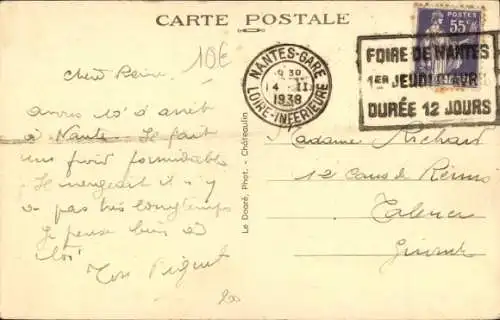 CARTE POSTALE
10€
POSTES
55c
NANTES-GARE
9 30
14 - II
1938
LOIRE-INFERIEURE
FOIRE DE NANTES
1ER JEUDI
DURÉE 12 JOURS
avons 10' d'arrêt
à Nantes. Il fait
un froid formidable
Il neigeait il n'y
a pas très longtemps
Je pense bien à
toi
Ton
200
Le Doaré, Phot. - Châteaulin
Madame Richard
12 Cours de
Talence
Gironde